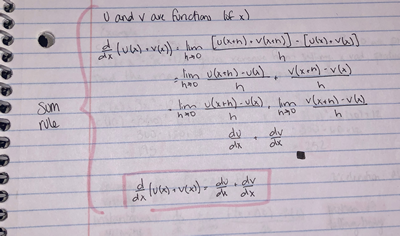 U and V are functions (of x)
d/dx (U(x) + V(x)) = lim h→0 [U(x+h) + V(x+h)] - [U(x) + V(x)] / h
= lim h→0 U(x+h) - U(x) / h + V(x+h) - V(x) / h
= lim h→0 U(x+h) - U(x) / h + lim h→0 V(x+h) - V(x) / h
sum
rule
du/dx + dv/dx
d/dx (U(x) + V(x)) = du/dx + dv/dx